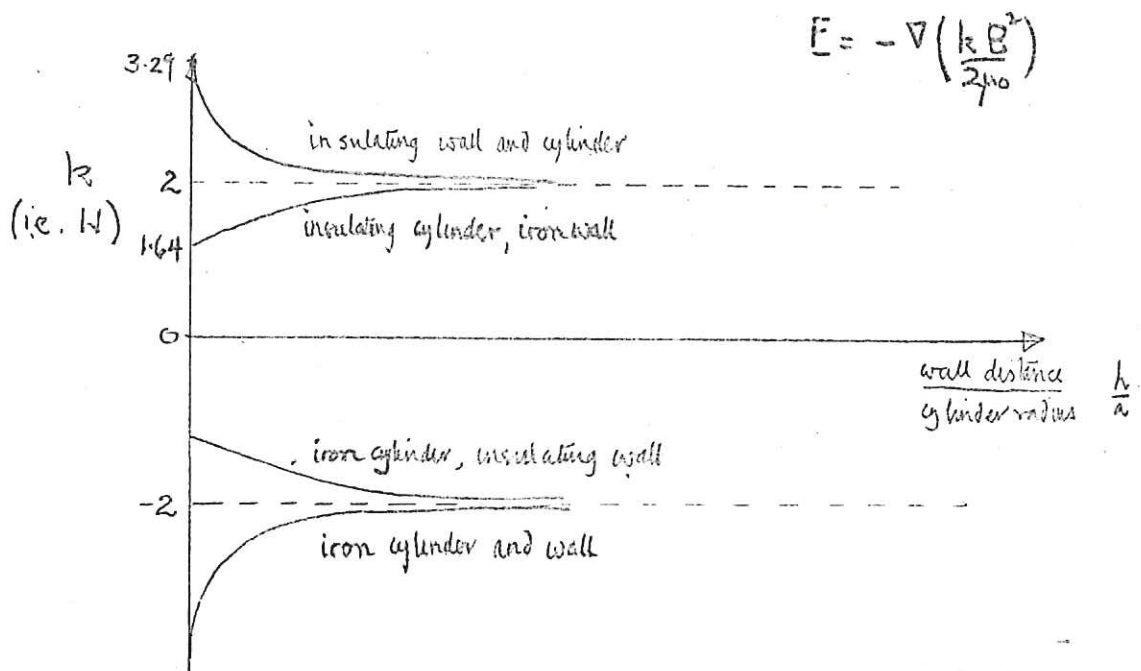 F = - ∇(kB²/2μ₀)
3.29
insulating wall and cylinder
k
(i.e. H)
2
insulating cylinder, iron wall
1.64
0
wall distance / cylinder radius
h/a
iron cylinder, insulating wall
-2
iron cylinder and wall